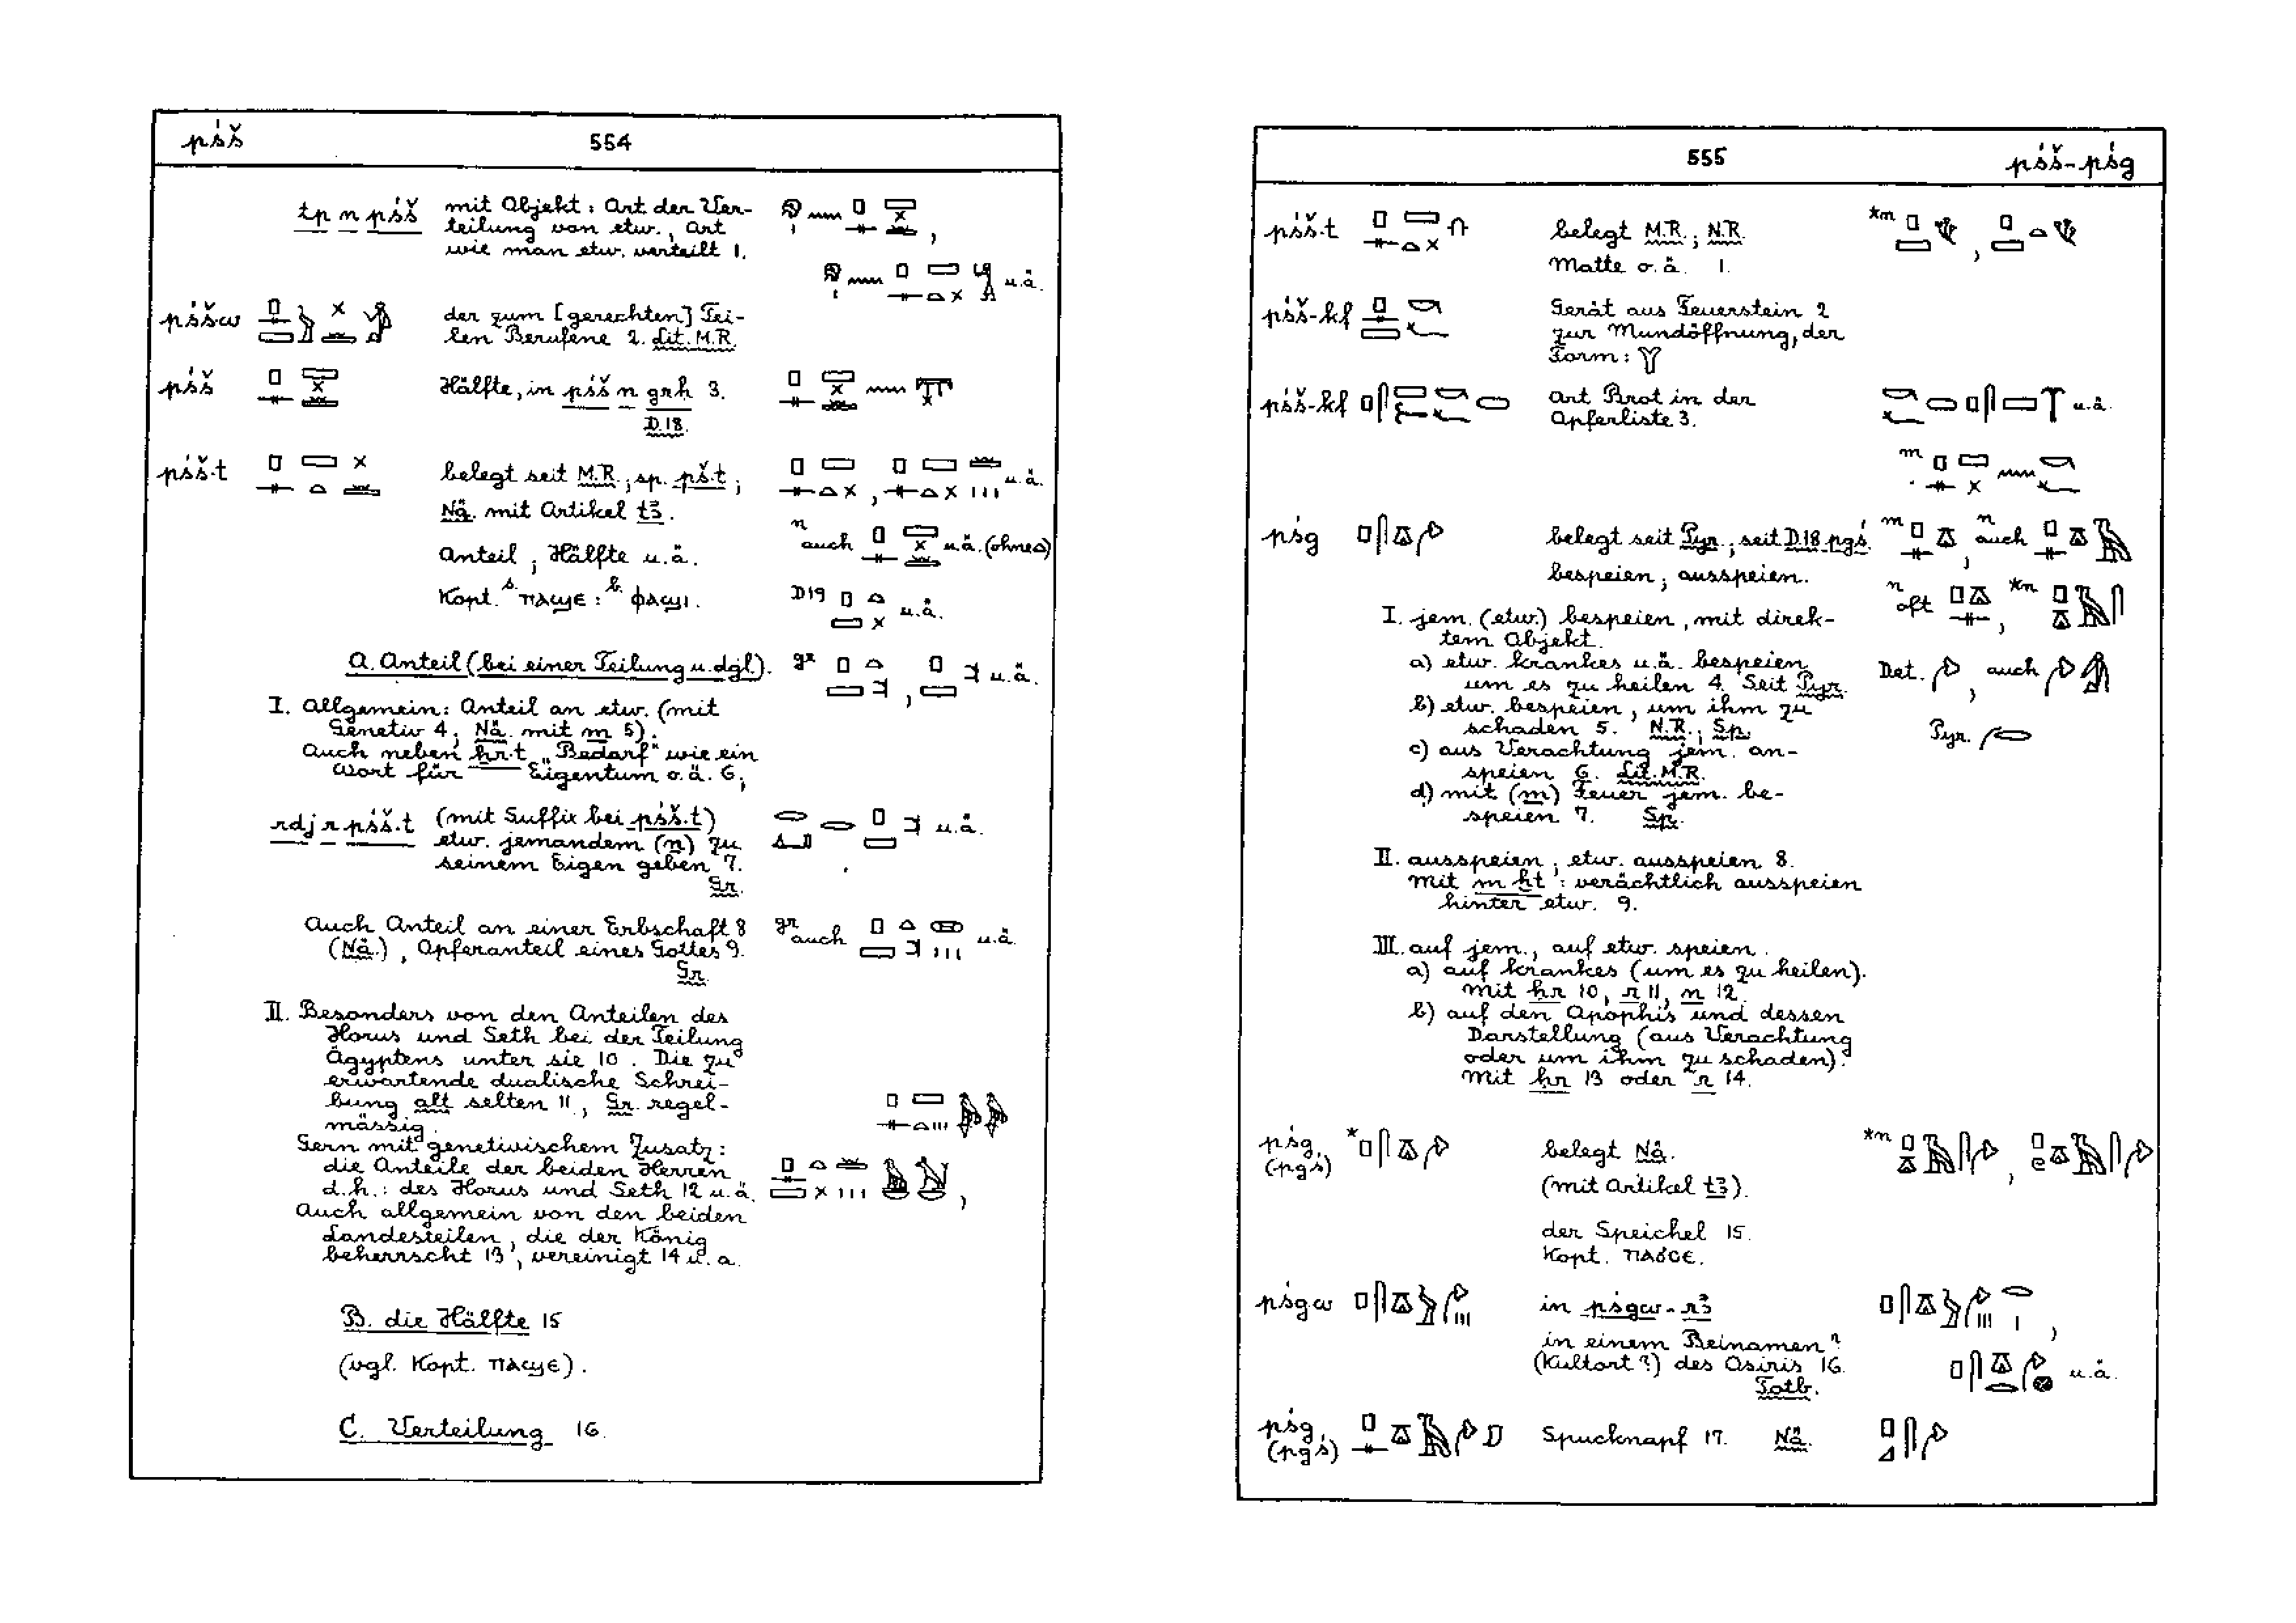 pśš 554
tp n pśš mit Objekt: Art der Ver-
teilung von etw., Art
wie man etw. verteilt 1.
u.ä.
pśš.w der zum [gerechten] Tei-
len Berufene 2. Lit. M.R.
pśš Hälfte, in pśš n grḥ 3.
D.18.
pśš.t belegt seit M.R.; sp. pš.t; u.ä.
Nä. mit Artikel tꜣ.
Anteil; Hälfte u.ä. n auch u.ä. (ohne ⌓)
Kopt. s. ⲡⲁϣⲉ: b. ⲫⲁϣⲓ. D19 u.ä.
A. Anteil (bei einer Teilung u. dgl.). gr u.ä.
I. Allgemein: Anteil an etw. (mit
Genetiv 4; Nä. mit m 5).
Auch neben ẖr.t „Bedarf" wie ein
Wort für Eigentum o.ä. 6;
rdj r pśš.t (mit Suffix bei pśš.t) u.ä.
etw. jemandem (n) zu
seinem Eigen geben 7.
Gr.
Auch Anteil an einer Erbschaft 8 gr auch u.ä.
(Nä.), Opferanteil eines Gottes 9.
Gr.
II. Besonders von den Anteilen des
Horus und Seth bei der Teilung
Ägyptens unter sie 10. Die zu
erwartende dualische Schrei-
bung alt selten 11, Gr. regel-
mässig.
Gern mit genetivischem Zusatz:
die Anteile der beiden Herren
d.h.: des Horus und Seth 12 u.ä.
Auch allgemein von den beiden
Landesteilen, die der König
beherrscht 13, vereinigt 14 u. a.
B. die Hälfte 15
(vgl. Kopt. ⲡⲁϣⲉ).
C. Verteilung 16.
555 pśš-pśg
pśš.t belegt M.R.; N.R. *m
Matte o.ä. 1.
pśš-kf Gerät aus Feuerstein 2
zur Mundöffnung, der
Form:
pśš-kf Art Brot in der u.ä.
Opferliste 3.
m
pśg belegt seit Pyr.; seit D.18 pgś. m n auch
bespeien; ausspeien.
n oft *n
I. jem. (etw.) bespeien, mit direk-
tem Objekt.
a) etw. krankes u.ä. bespeien Det. auch
um es zu heilen 4. Seit Pyr.
b) etw. bespeien, um ihm zu
schaden 5. N.R.; Sp. Pyr.
c) aus Verachtung jem. an-
speien 6. Lit. M.R.
d) mit (m) Feuer jem. be-
speien 7. Sp.
II. ausspeien; etw. ausspeien 8.
Mit m ḫt: verächtlich ausspeien
hinter etw. 9.
III. auf jem., auf etw. speien.
a) auf krankes (um es zu heilen).
Mit ḥr 10, r 11, n 12.
b) auf den Apophis und dessen
Darstellung (aus Verachtung
oder um ihm zu schaden).
Mit ḥr 13 oder r 14.
pśg, * belegt Nä. *n
(pgś) (mit Artikel tꜣ).
der Speichel 15.
Kopt. ⲡⲁϭⲥⲉ.
pśgw in pśgw-rꜣ
in einem Beinamen?
(Kultort?) des Osiris 16. u.ä.
Totb.
pśg, Spucknapf 17. Nä.
(pgś)